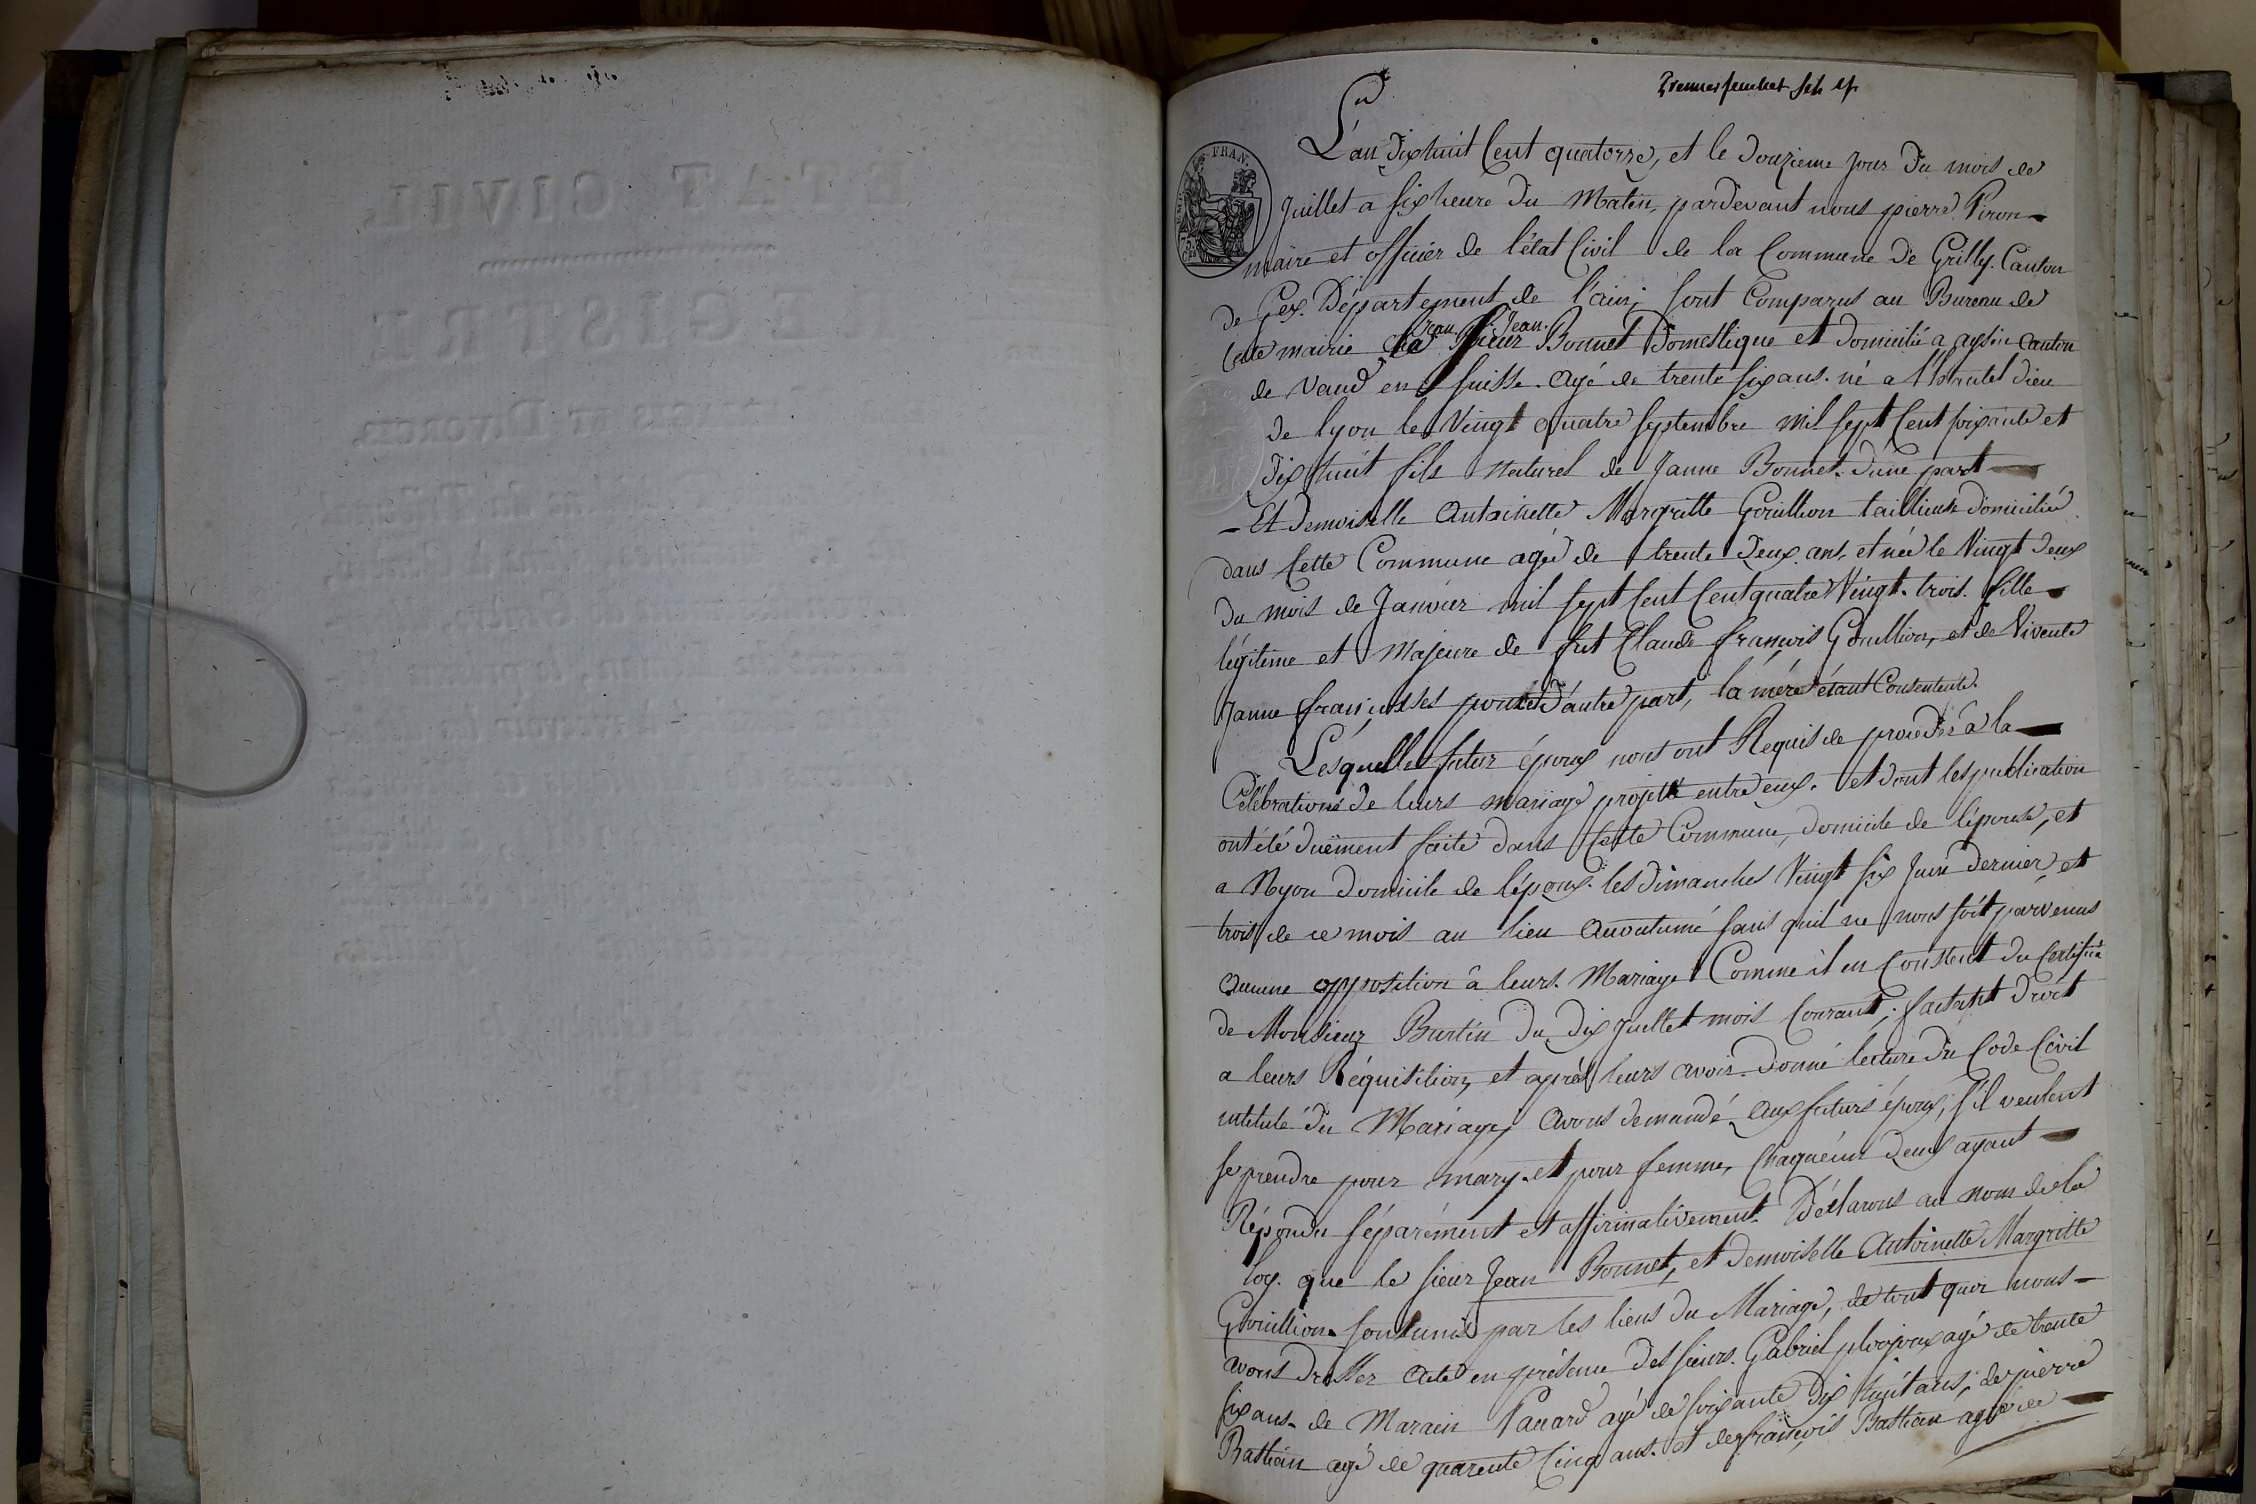 L'an dixhuit Cent quatorze, et le douzieme jour du mois de
Juillet a six heure du Matin, pardevant nous pierre Piron
maire et officier de l'état Civil de la Commune de Grilly. Canton
de Gex. Département de l'ain; sont Comparus au Bureau de
Cette mairie Jean. Bonnet Domestique et domicilié a canton
de Vaud en suisse. agé de trente six ans. né a dieu
de lyon le Vingt quatre septembre mil sept Cent soixante et
dix huit fils naturel de Janne Bonnet. dune part
Et demoiselle Antoinette Margritte Gouillion taillieuse domiciliée
dans Cette Commune agée de trente deux ans, et née le Vingt deux
du mois de Janvier mil sept Cent Cent quatre Vingt. trois. fille
légitime et Majeure de fut Claude françois Gouillion, et de Vivente
Janne d'autre part, la mère étant Consentente.
Lesquelles futur époux nous ont Requis de proceder à la
Célébrations de leurs mariage projetté entre deux. et dont les publication
ont été duëment faite dans Cette Commune, domicile de l'épouse, et
a Nyon domicile de l'époux. les dimanches Vingt six Juin dernier, et
trois de ce mois au lieu accoutumé sans quil ne nous soit parvenus
aucune opposition à leurs. Mariage Comme il en Constent du Certifica
de Monsieur Burtin du dix Juillet mois Courant; faisant droit
a leurs Réquisition, et aprés leurs avoir donné lecture du Code Civil
intitulé du Mariage, Avons demandé aux futurs époux, s'il veulent
se prendre pour mary. et pour femme, Chaquéun deux ayant
Répondu séparément et affirmativement. Déclarons au nom de la
loy. que le sieur Jean Bonnet, et demoiselle Antoinette Margritte
Gouillion. sont unis par les liens du Mariage, de tout quoi nous
avons dresser acte en présence des sieurs. Gabriel agé de trente
six ans. de Panard agé de soixante dix huit ans, de pierre
Bastian agé de quarente Cinq ans. et de françois Bastian agé de
FRAN.
ETAT CIVIL
REGISTRE
ET DIVORCES.